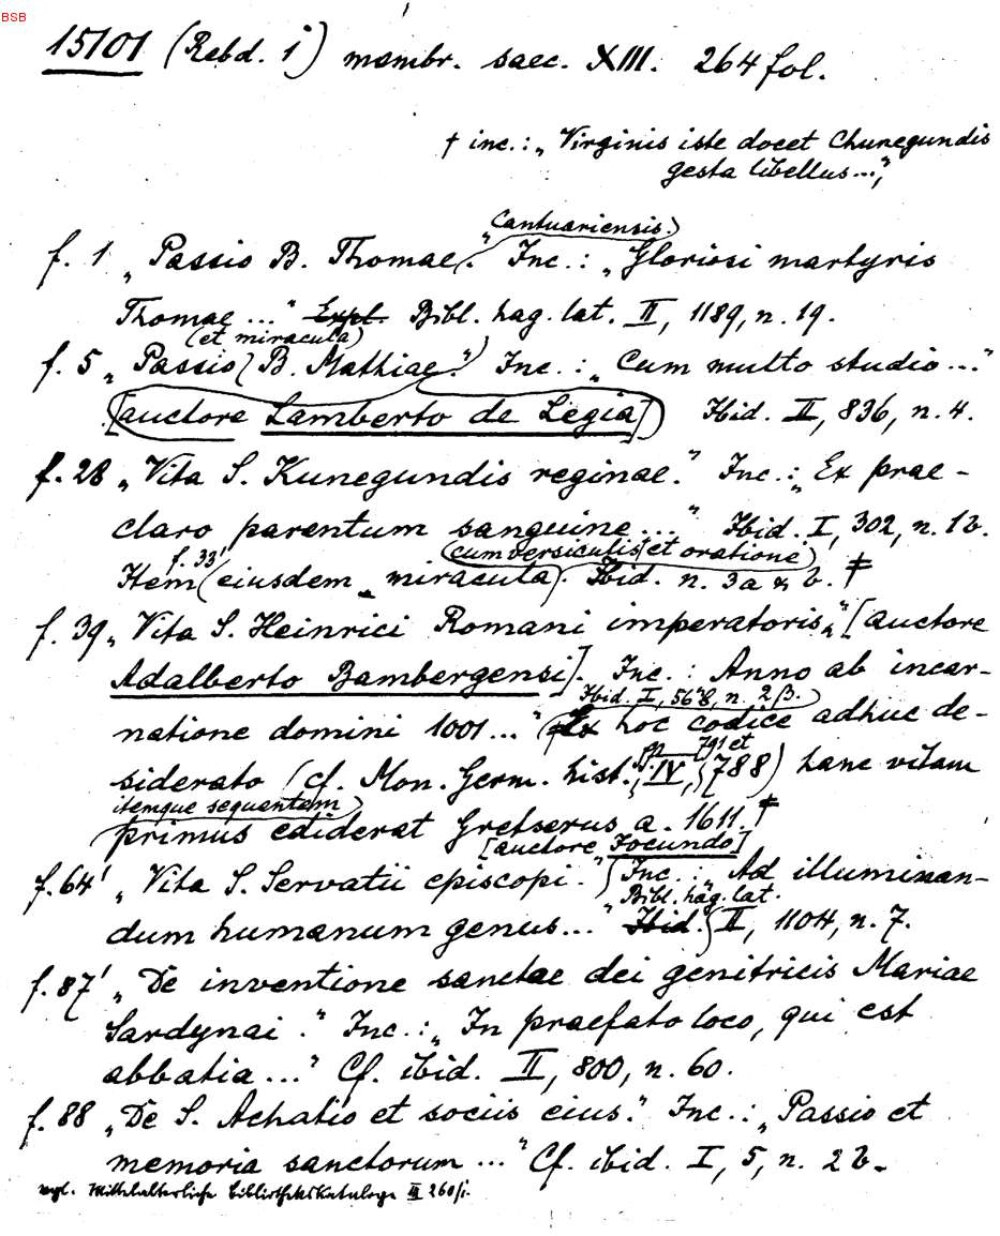 BSB
15101 (Rebd. 1) membr. saec. XIII. 264 fol.
† inc.: „Virginis iste docet Chunegundis
gesta libellus...",
Cantuariensis.
f. 1 „Passio B. Thomae." Inc.: „Gloriosi martyris
Thomae ..." Expl. Bibl. hag. lat. II, 1189, n. 19.
(et miracula)
f. 5 „Passio B. Mathiae." Inc.: „Cum multo studio..."
[auctore Lamberto de Legia] Ibid. II, 836, n. 4.
f. 28 „Vita S. Kunegundis reginae." Inc.: „Ex prae-
claro parentum sanguine..." Ibid. I, 302, n. 1b.
f. 33' (cum versiculis et oratione)
Item (eiusdem „miracula). Ibid. n. 3a & b. ‡
f. 39 „Vita S. Heinrici Romani imperatoris„" [auctore
Adalberto Bambergensi]. Inc.: Anno ab incar-
Ibid. I, 568, n. 2β.
natione domini 1001..." Ex hoc codice adhuc de-
pp 791 et
siderato (cf. Mon. Germ. hist., IV, 788) hanc vitam
itemque sequentem
primus ediderat Gretserus a. 1611. ‡
[auctore Jocundo]
f. 64' „Vita S. Servatii episcopi." Inc.: „Ad illuminan-
Bibl. hag. lat.
dum humanum genus..." Ibid. II, 1104, n. 7.
f. 87' „De inventione sanctae dei genitricis Mariae
Sardynai." Inc.: „In praefato loco, qui est
abbatia..." Cf. ibid. II, 800, n. 60.
f. 88 „De S. Achatio et sociis eius." Inc.: „Passio et
memoria sanctorum ..." Cf. ibid. I, 5, n. 2b.
vgl. Mittelalterliche Bibliothekskataloge III 260f.